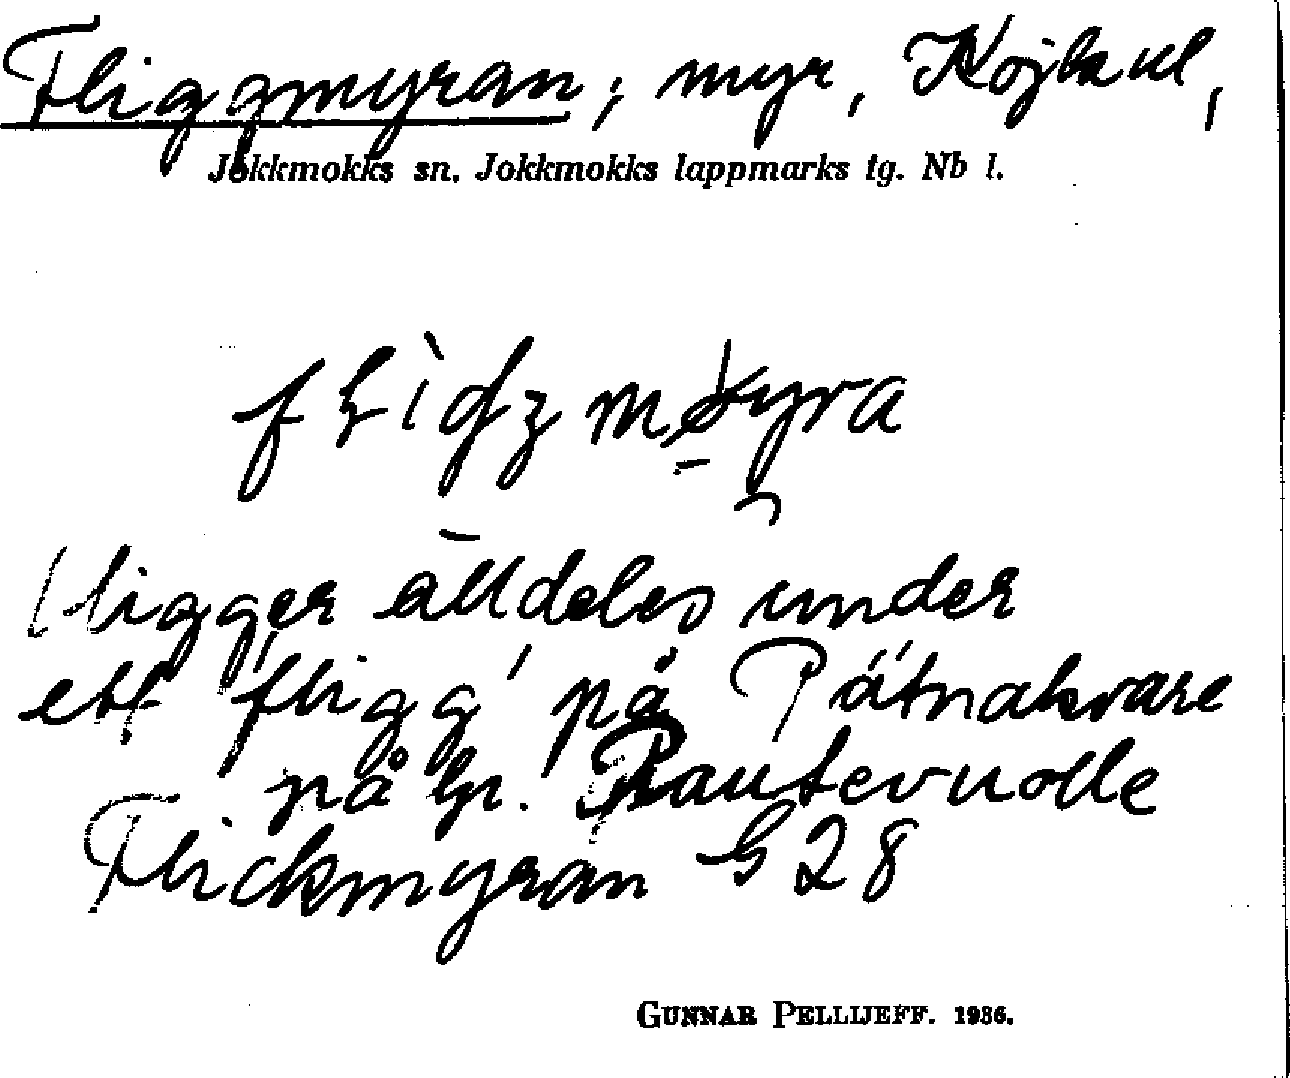 Fliggmyran, myr,
Jokkmokks sn. Jokkmokks lappmarks tg. Nb l.
ligger alldeles under
ett 'fligg' på Pätnakvare
på kr. Rautevuolle
Flickmyran G 28
GUNNAR PELLIJEFF. 1936.